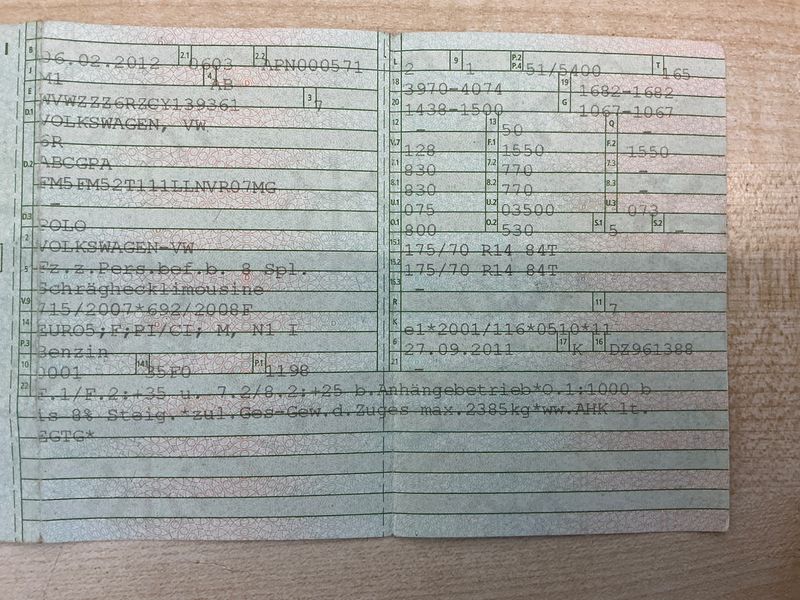 B 06.02.2012 2.1 0603 2.2 APN000571
J M1 4 AB
E WVWZZZ6RZCY139361 3 7
D.1 VOLKSWAGEN, VW
6R
D.2 ABCGPA
FM5FM52T111LLNVR07MG
-
D.3 POLO
2 VOLKSWAGEN-VW
5 Fz.z.Pers.bef.b. 8 Spl.
Schräghecklimousine
V.9 715/2007*692/2008F
14 EURO5;F;PI/CI; M, N1 I
P.3 Benzin
10 0001 14.1 35F0 P.1 1198
L 2 9 1 P.2 P.4 51/5400 T 165
18 3970-4074 19 1682-1682
20 1438-1500 G 1067-1067
12 - 13 50 Q -
V.7 128 F.1 1550 F.2 1550
7.1 830 7.2 770 7.3 -
8.1 830 8.2 770 8.3 -
U.1 075 U.2 03500 U.3 073
O.1 800 O.2 530 S.1 5 S.2 -
15.1 175/70 R14 84T
15.2 175/70 R14 84T
15.3 -
R 11 7
K e1*2001/116*0510*11
6 27.09.2011 17 K 16 DZ961388
21 -
22 F.1/F.2:+35 u. 7.2/8.2:+25 b.Anhängebetrieb*O.1:1000 b
is 8% Steig.*zul.Ges-Gew.d.Zuges max.2385kg*ww.AHK lt.
EGTG*